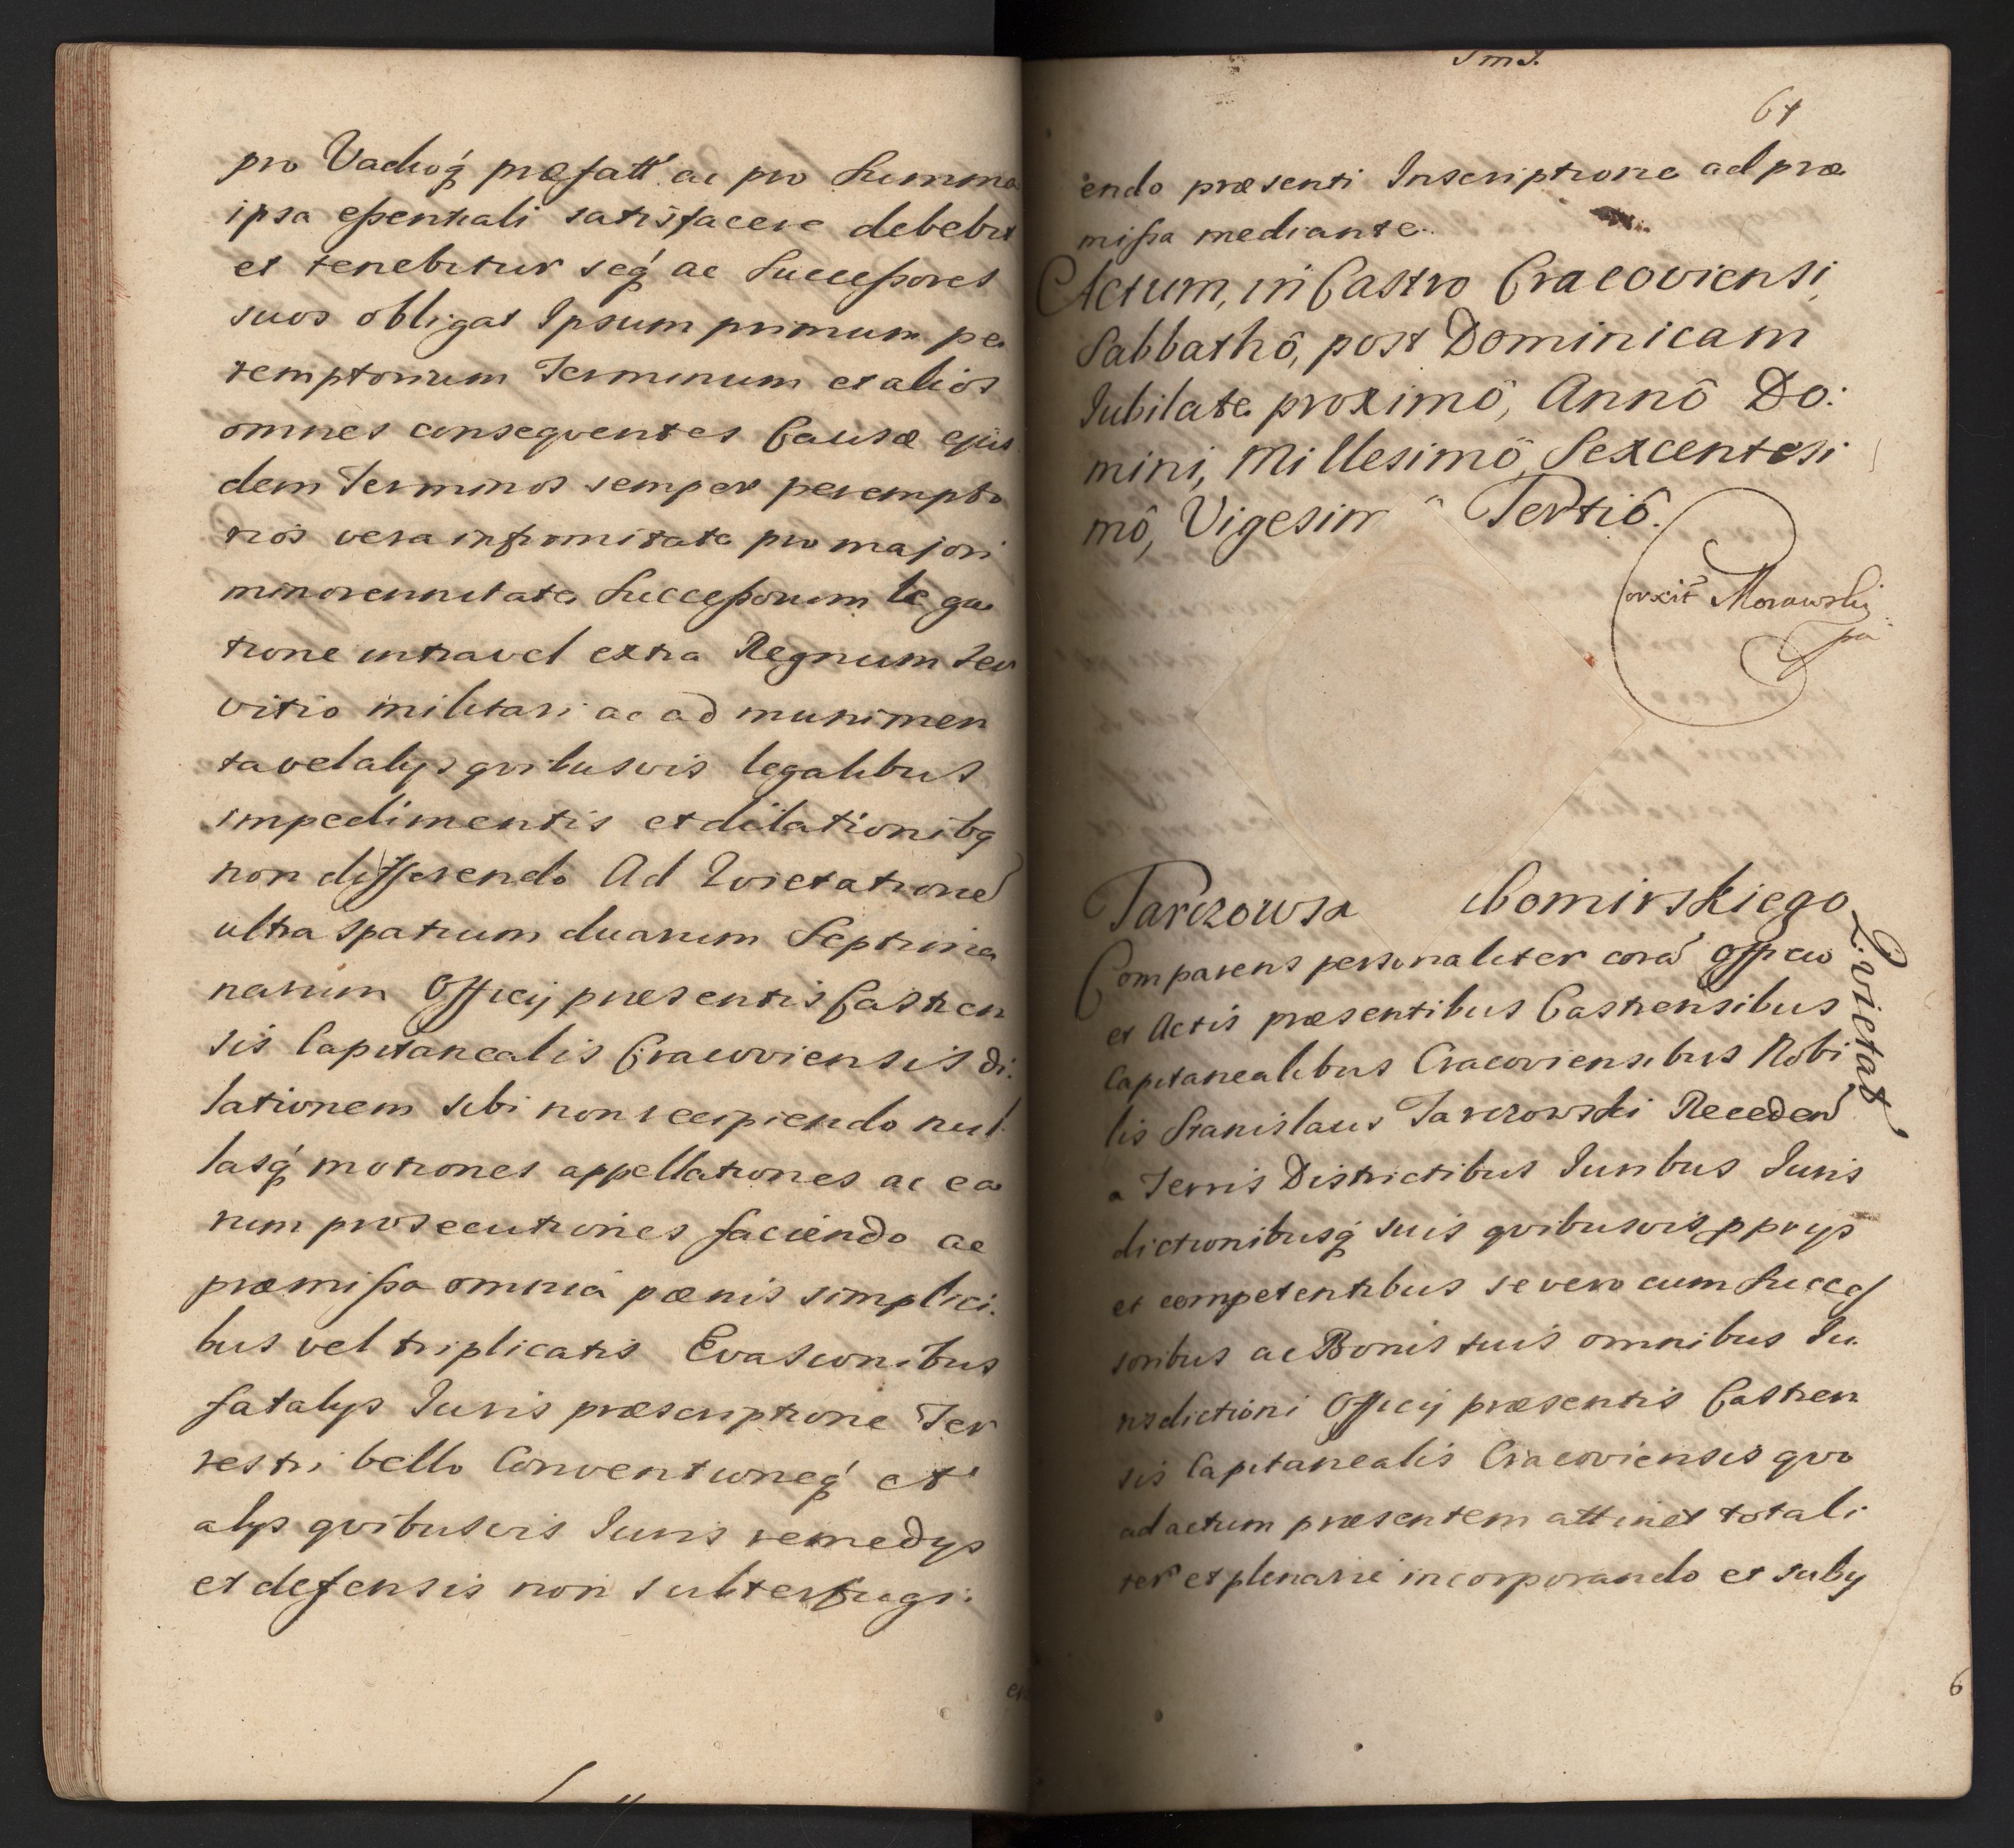 pro Vadioq́ præfatt ac pro Summa
ipsa eßentiali satisfacere debebit
et tenebitur seq́ ac Succeßores
suos obligat Ipsum primum pe
remptorium Terminum et alios
omnes conseqventes Causæ ejus
dem Terminos semper perempto
rios vera infirmitate pro majori
minorennitate Succeßorum lega
tione intra vel extra Regnum Ser
vitio militari ac ad munimen
ta vel alys qvibusvis legalibus
impedimentis et dilationibq
non differendo Ad Qvietatione
ultra spatium duarum Septima
narum Officij præsentis Castren
sis Capitanealis Cracoviensis di:
lationem sibi non recipiendo nul
lasq́ motiones appellationes ac ea
rum prosecutiones faciendo ac
præmißa omnia pœnis simplici:
bus vel triplicatis Evasionibus
fatalys Iuris præscriptione Ter
restri bello Conventioneq́ et
alys qvibusvis Iuris remedys
et defensis non subterfugi:
61
endo præsenti Inscriptione ad præ
mißa mediante.
Actum, in Castro Cracoviensi,
Sabbathô, post Dominicam
Iubilate proximô, Annô Do:
mini, Millesimô Sexcentesi
mô, Vigesim Tertiô.
Corxit Morawski
Tarczowsk ubomirskiego
Qvietat
Comparens personaliter corã Officio
et Actis præsentibus Castrensibus
Capitanealibus Cracoviensibus Nobi
lis Stanislaus Tarczowski Receden
a Terris Districtibus Iuribus Iuris
dictionibusq́ suis qvibusvis pprijs
et competentibus se vero cum Succes
soribus ac Bonis suis omnibus Iu
risdictioni Officij præsentis Castren
sis Capitanealis Cracoviensis qvo
ad actum præsentem attinet totali
ter et plenarie incorporando et subij
6